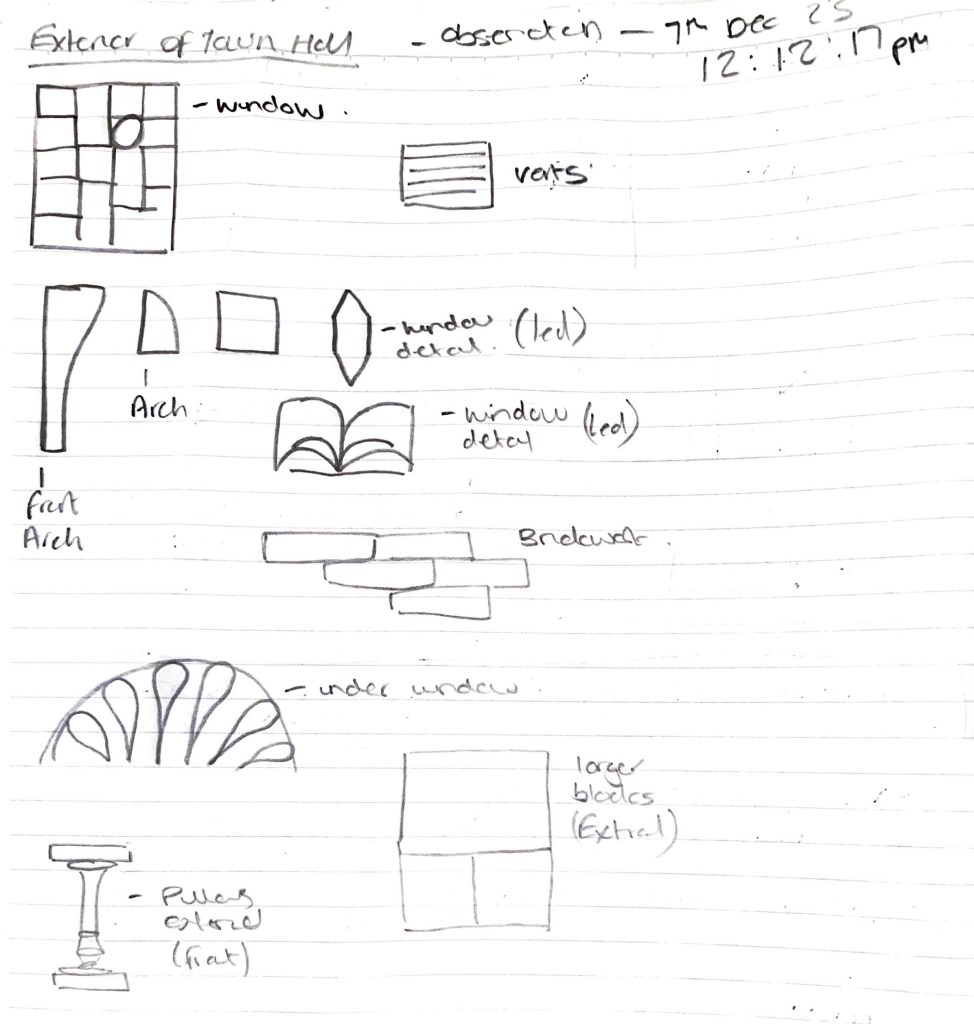 Exterior of Town Hall - observation - 7th Dec 23
12:12:17 pm
- window.
vents
- window
detail. (led)
Arch
- window (led)
detail
front
Arch
Brickwork.
- under window
larger
blocks
(External)
- Pillars
external
(front)